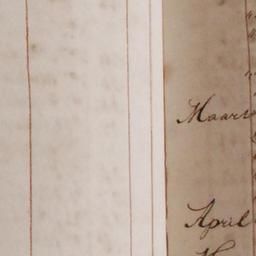 Maart
April